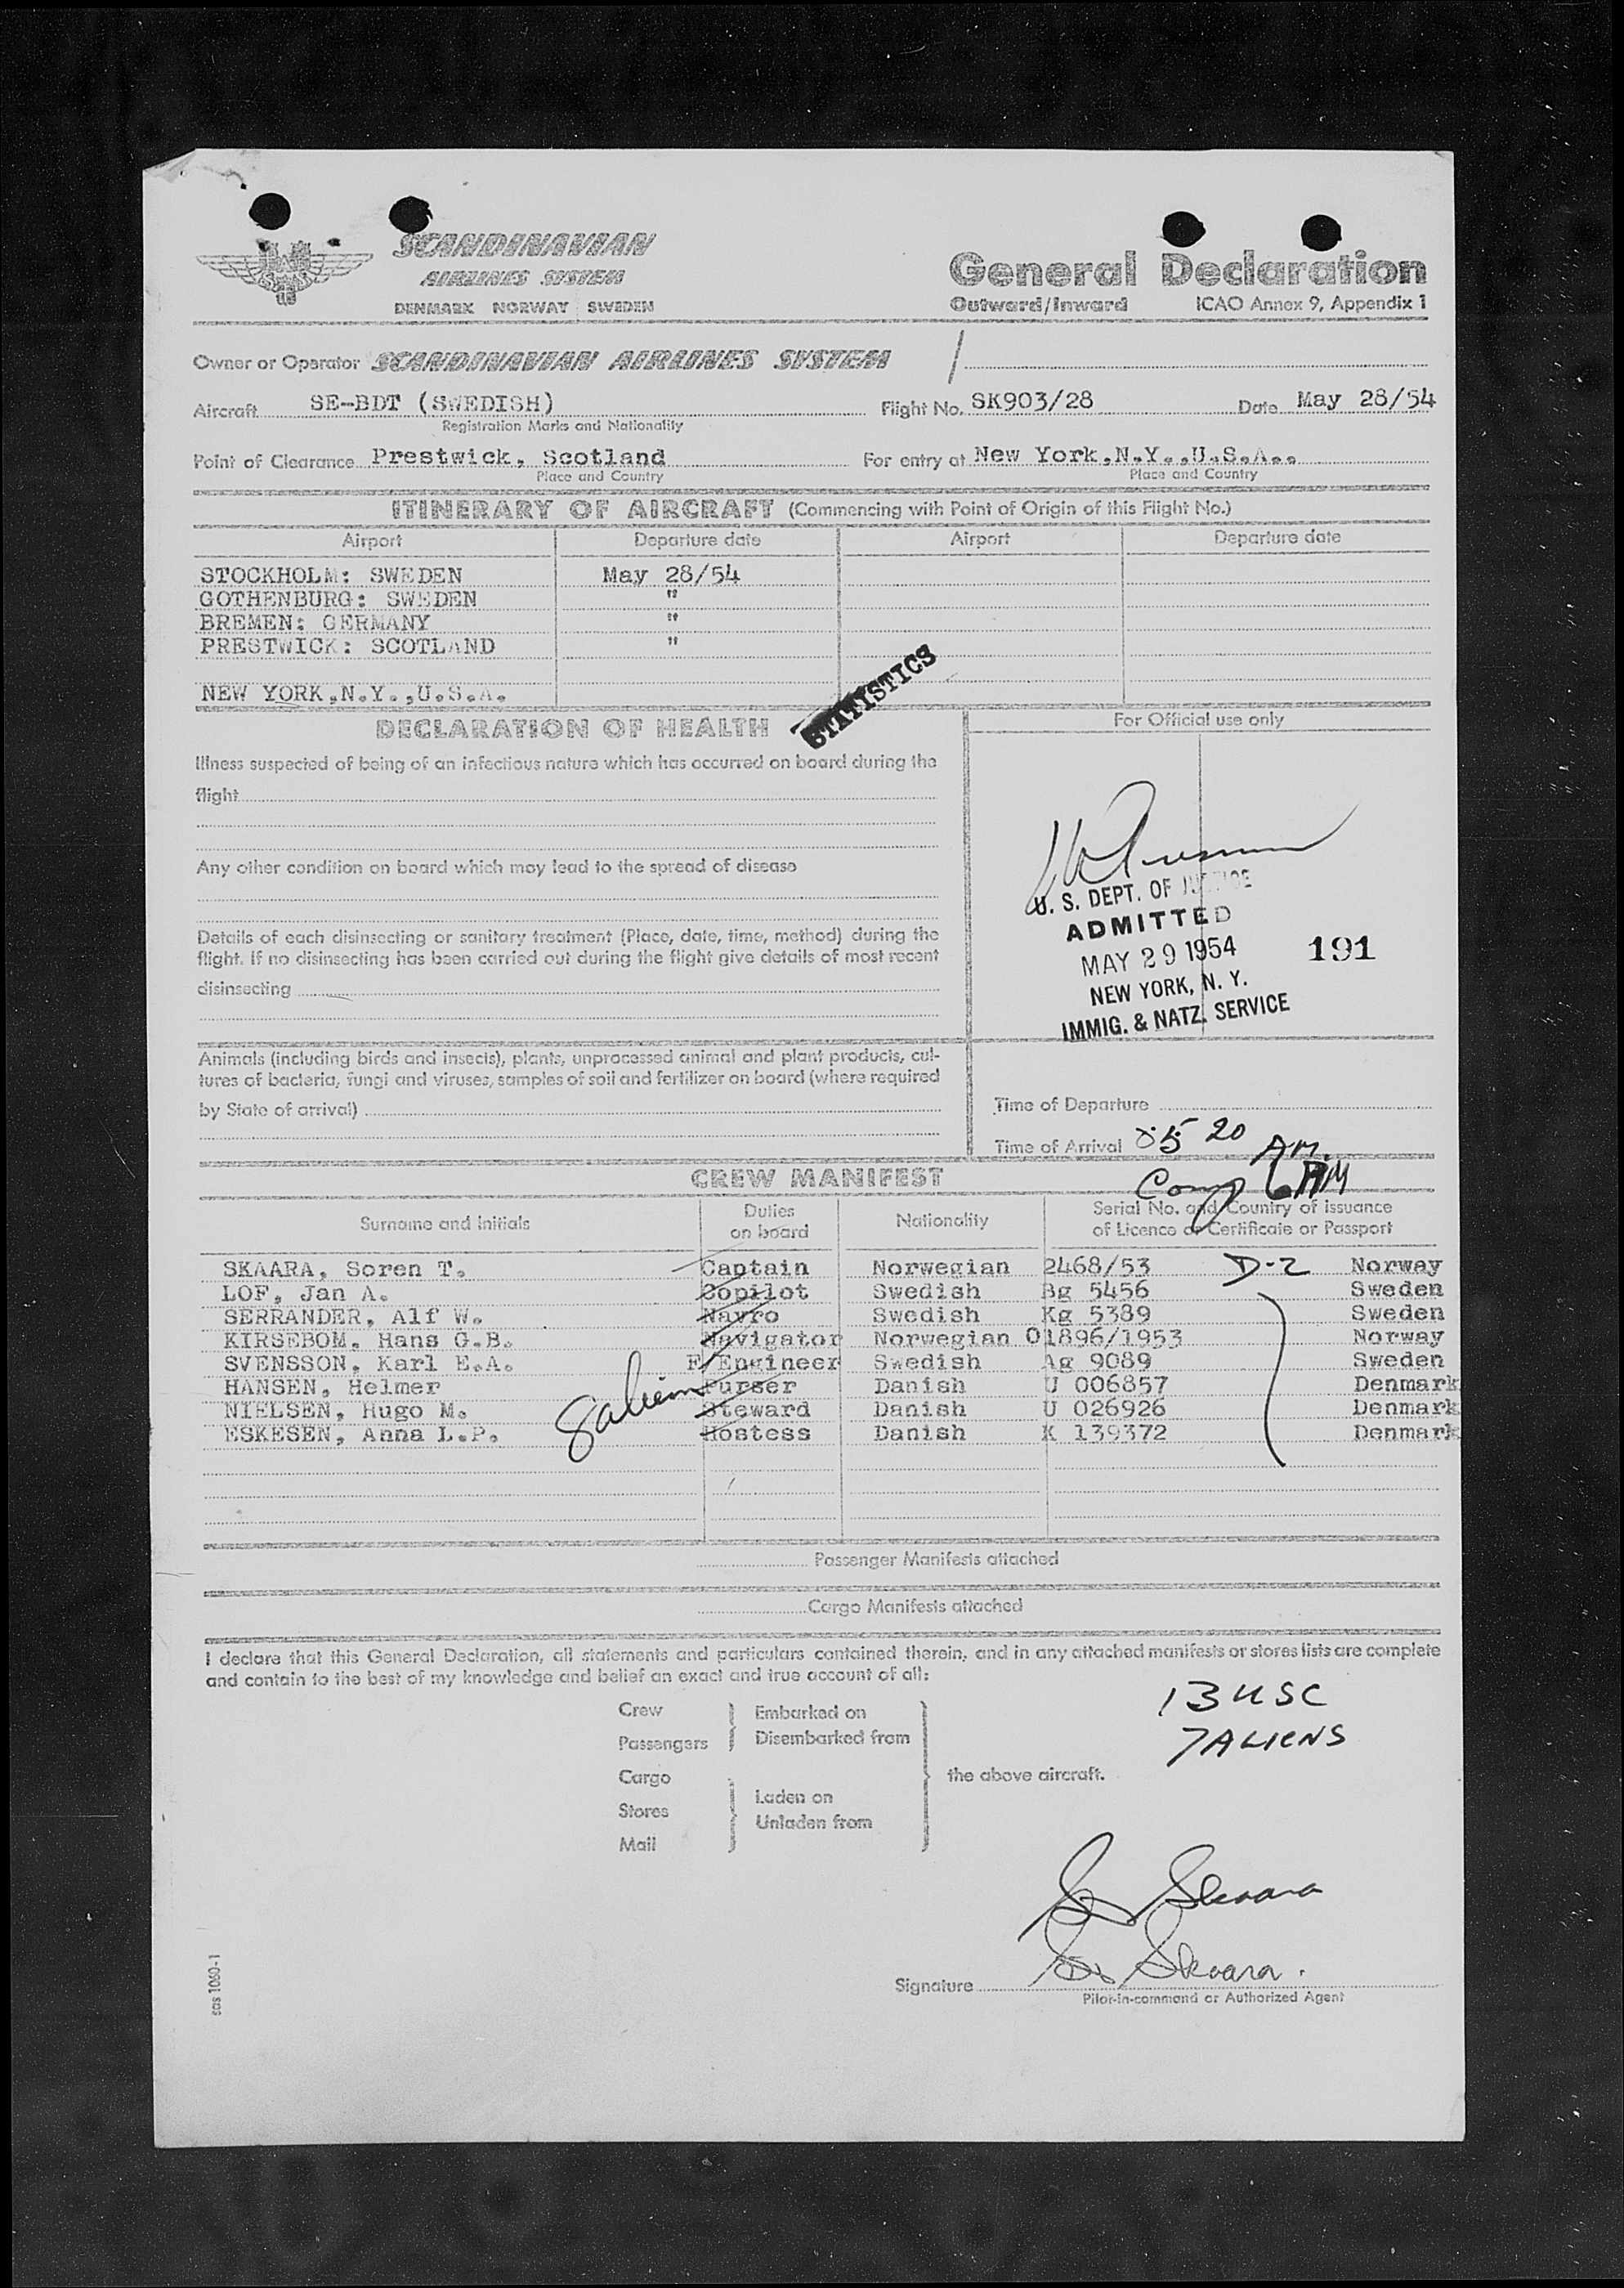 SCANDINAVIAN
AIRLINES SYSTEM
DENMARK NORWAY SWEDEN
General Declaration
Outward/Inward ICAO Annex 9, Appendix 1
Owner or Operator SCANDINAVIAN AIRLINES SYSTEM
Aircraft SE-BDT (SWEDISH) Flight No. SK903/28 Date May 28/54
Registration Marks and Nationality
Point of Clearance Prestwick, Scotland For entry at New York,N.Y.,U.S.A..
Place and Country Place and Country
ITINERARY OF AIRCRAFT (Commencing with Point of Origin of this Flight No.)
Airport Departure date Airport Departure date
STOCKHOLM: SWEDEN May 28/54
GOTHENBURG: SWEDEN "
BREMEN: GERMANY "
PRESTWICK: SCOTLAND "
NEW YORK,N.Y.,U.S.A.
STATISTICS
DECLARATION OF HEALTH
For Official use only
Illness suspected of being of an infectious nature which has occurred on board during the
flight
Any other condition on board which may lead to the spread of disease
Details of each disinsecting or sanitary treatment (Place, date, time, method) during the
flight. If no disinsecting has been carried out during the flight give details of most recent
disinsecting
U. S. DEPT. OF JUSTICE
ADMITTED
MAY 29 1954 191
NEW YORK, N. Y.
IMMIG. & NATZ. SERVICE
Animals (including birds and insects), plants, unprocessed animal and plant products, cul-
tures of bacteria, fungi and viruses, samples of soil and fertilizer on board (where required
by State of arrival)
Time of Departure
Time of Arrival 05 20 AM.
Comp 6 AM
CREW MANIFEST
Surname and initials Duties on board Nationality Serial No. and Country of issuance of Licence or Certificate or Passport
SKAARA, Soren T. Captain Norwegian 2468/53 D-2 Norway
LOF, Jan A. Copilot Swedish Bg 5456 Sweden
SERRANDER, Alf W. Navro Swedish Kg 5389 Sweden
KIRSEBOM, Hans G.B. Navigator Norwegian 01896/1953 Norway
SVENSSON, Karl E.A. F/Engineer Swedish Ag 9089 Sweden
HANSEN, Helmer Purser Danish U 006857 Denmark
NIELSEN, Hugo M. Steward Danish U 026926 Denmark
ESKESEN, Anna L.P. Hostess Danish K 139372 Denmark
8 aliens
Passenger Manifests attached
Cargo Manifests attached
I declare that this General Declaration, all statements and particulars contained therein, and in any attached manifests or stores lists are complete
and contain to the best of my knowledge and belief an exact and true account of all:
13 USC
7 ALIENS
Crew Embarked on
Passengers Disembarked from
Cargo the above aircraft.
Stores Laden on
Mail Unladen from
Skaara
Signature Skaara.
Pilot-in-command or Authorized Agent
sas 1060-1